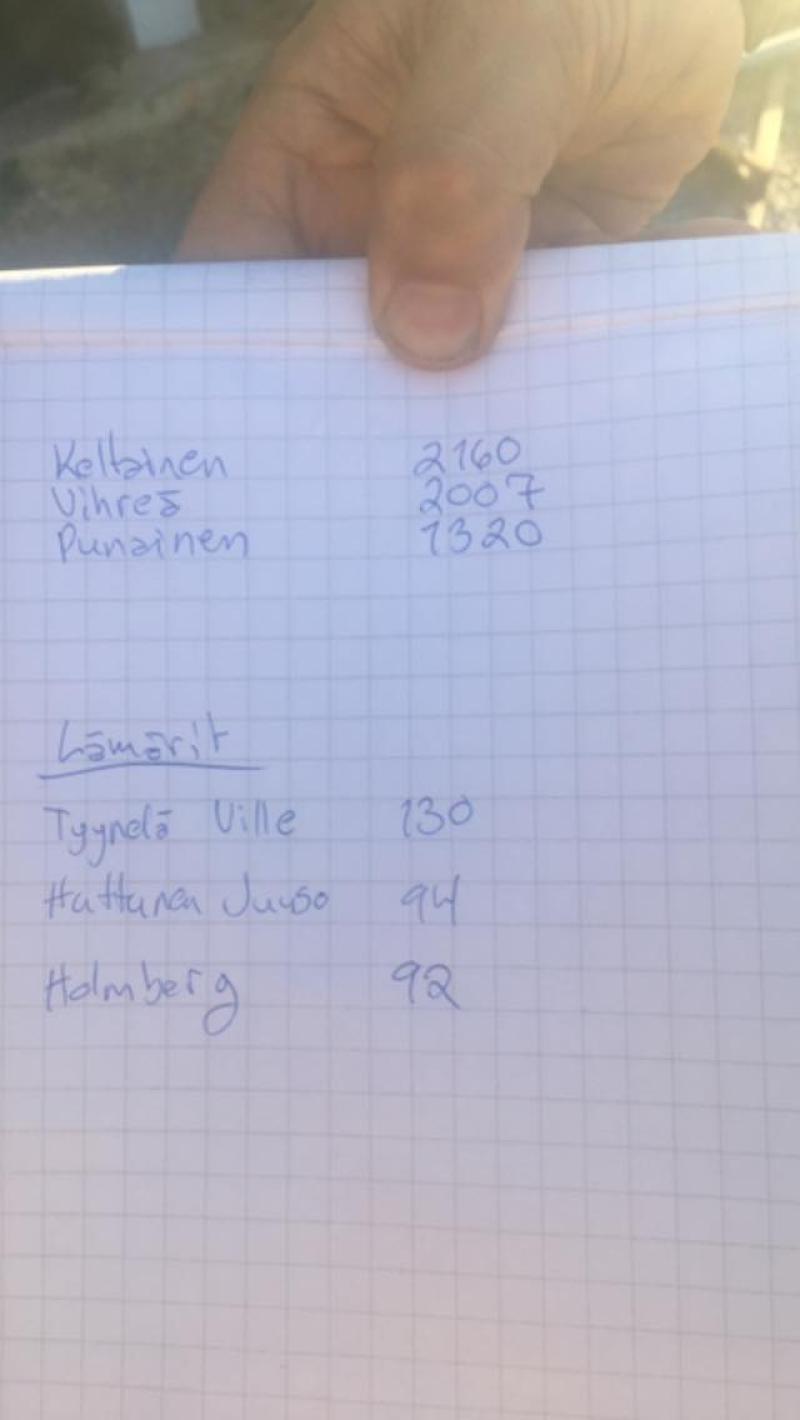 Keltainen 2160
Vihreä 2007
Punainen 1320
Lämärit
Tyynelä Ville 130
Huttunen Juuso 94
Holmberg 92